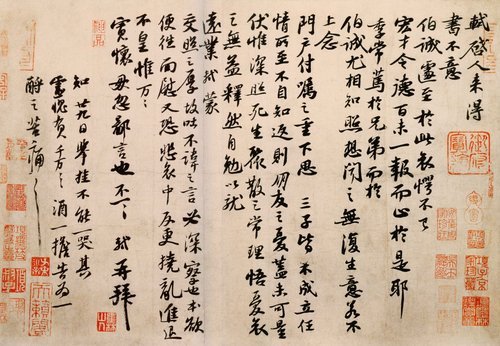 軾啓人来得
書不意
伯誠遽至於此哀愕不已
宏才令德百未一報而止於是耶
季常篤於兄弟而於
伯誠尤相知照想聞之無復生意若不
上念
門戶付囑之重下思三子皆未成立任
情所至不自知返則朋友之憂盖未可量
伏惟深照死生聚散之常理悟憂哀
之無益釋然自勉以就
遠業軾蒙
交照之厚故吐不諱之言必深察也本欲
便往面慰又恐悲哀中反更撓亂進退
不皇惟万〻
寬懷毋忽鄙言也不一〻軾再拜
知廿九日舉挂不能一哭其
靈愧負千万〻酒一擔告為一
酹之苦痛〻〻